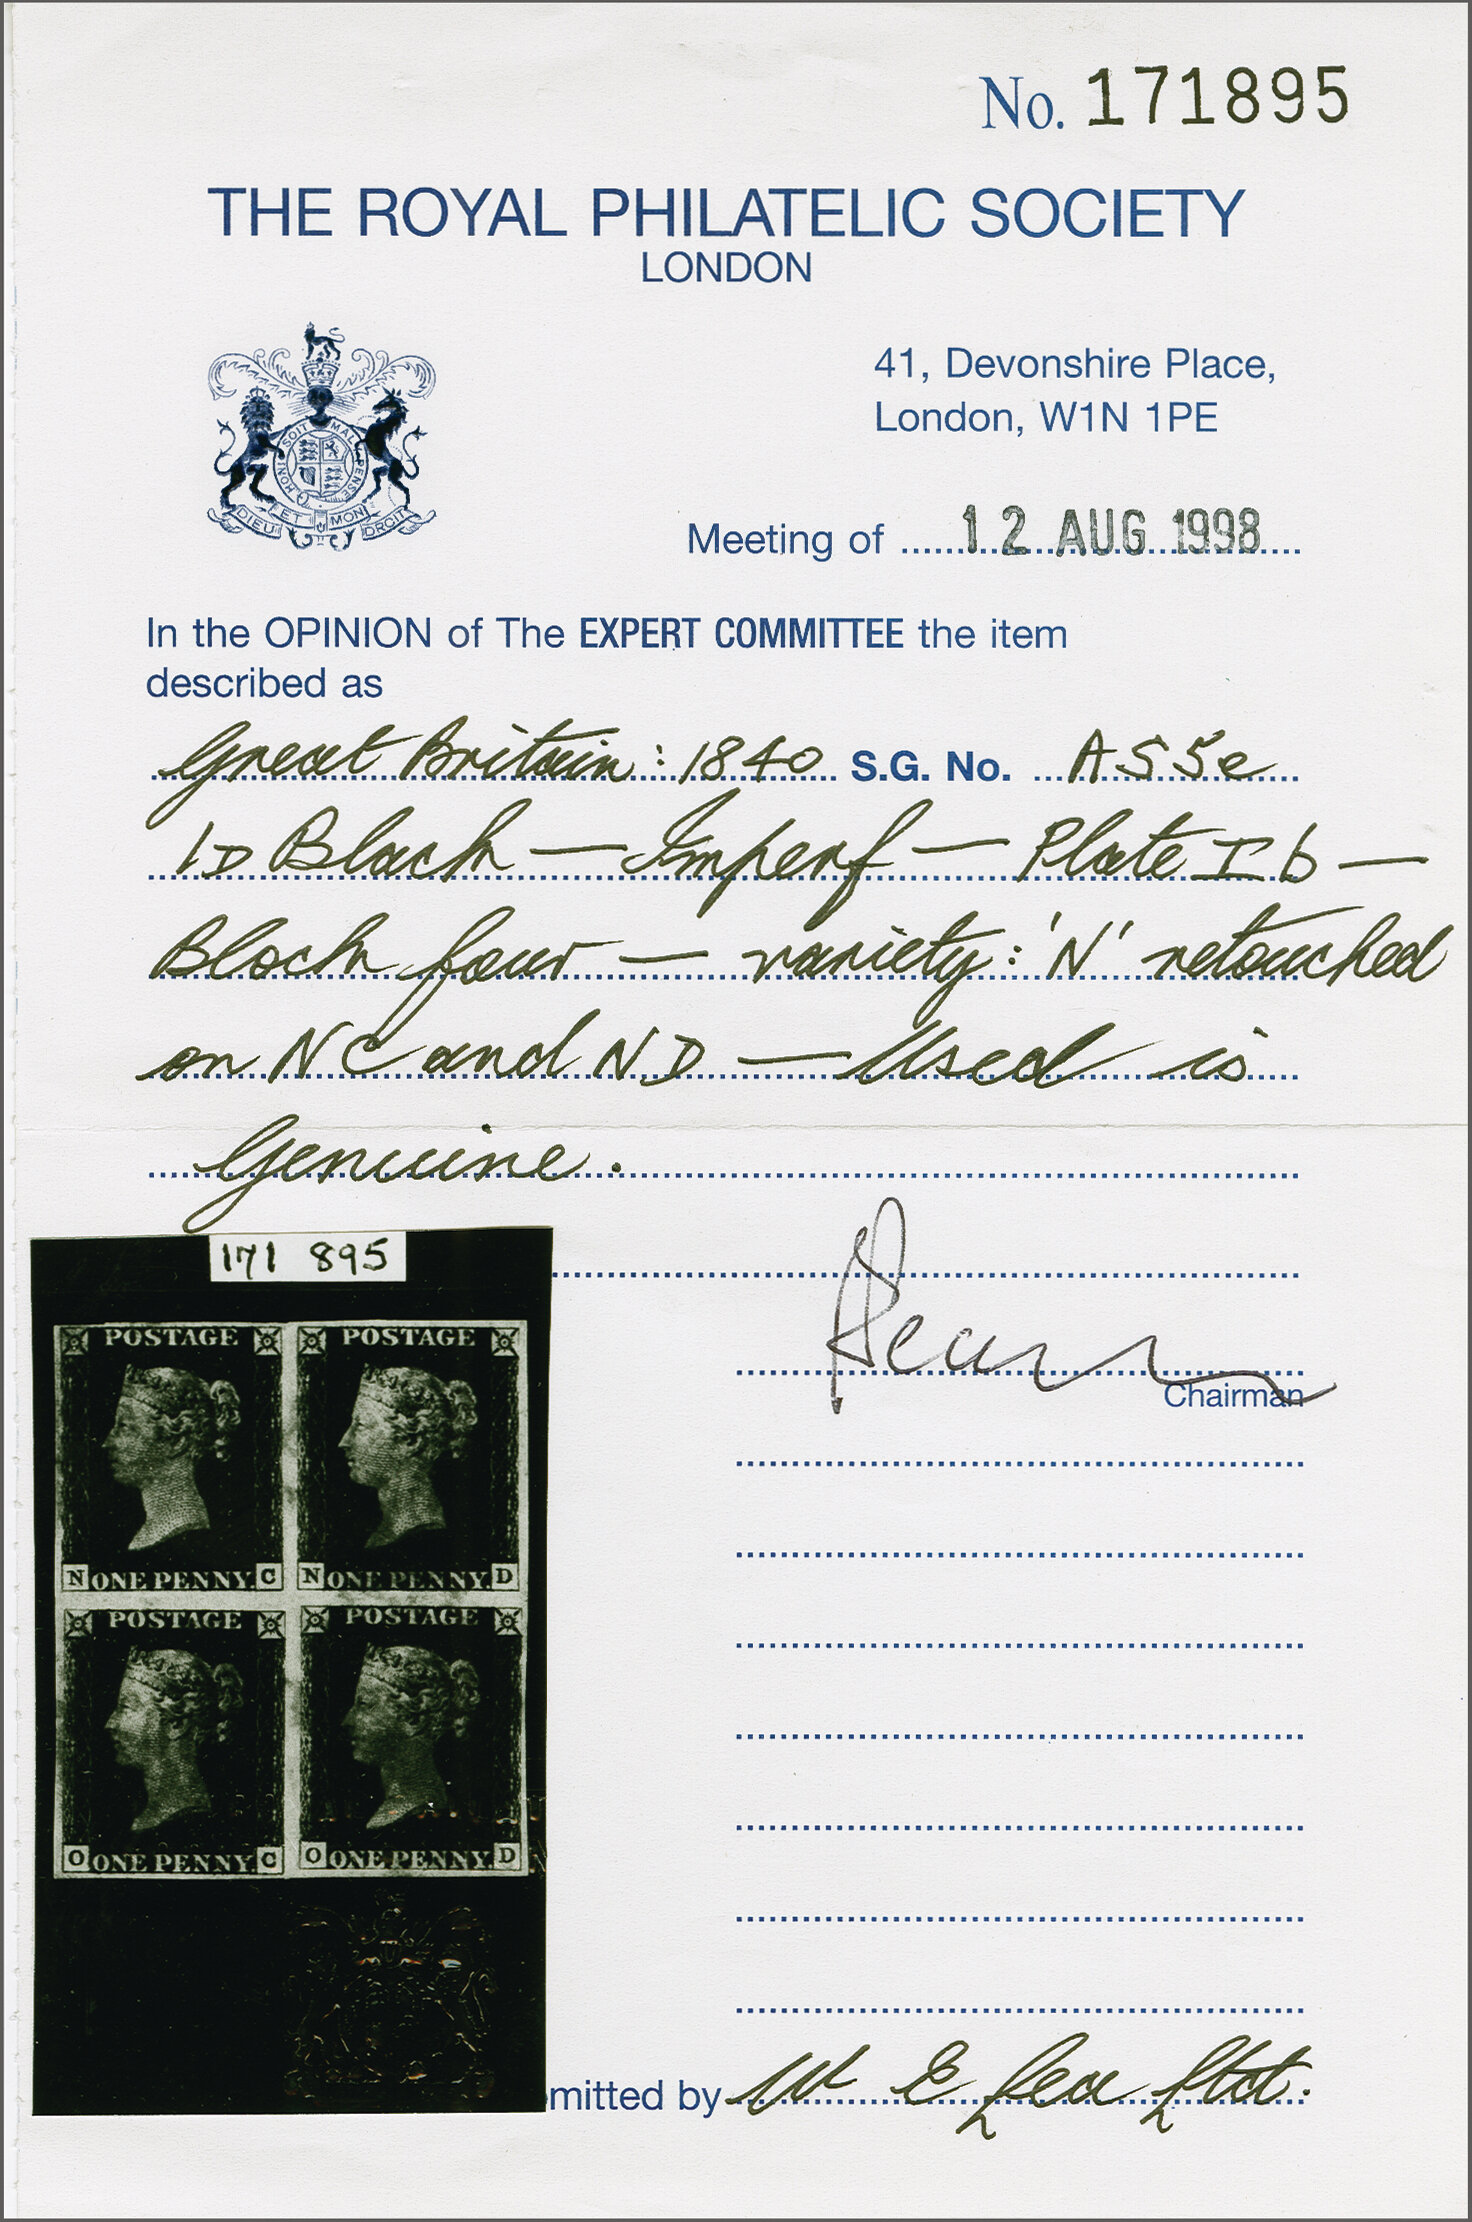 No. 171895
THE ROYAL PHILATELIC SOCIETY
LONDON
HONI SOIT MAL PENSE
DIEU ET MON DROIT
41, Devonshire Place,
London, W1N 1PE
Meeting of 12 AUG 1998
In the OPINION of The EXPERT COMMITTEE the item
described as
Great Britain: 1840 S.G. No. AS5e
1D Black — Imperf — Plate Ib —
Block four — variety: 'N' retouched
on NC and ND — Used is
Genuine.
171 895
POSTAGE POSTAGE
N ONE PENNY. C N ONE PENNY. D
POSTAGE POSTAGE
O ONE PENNY. C O ONE PENNY. D
Chairman
mitted by W E Lea Ltd.